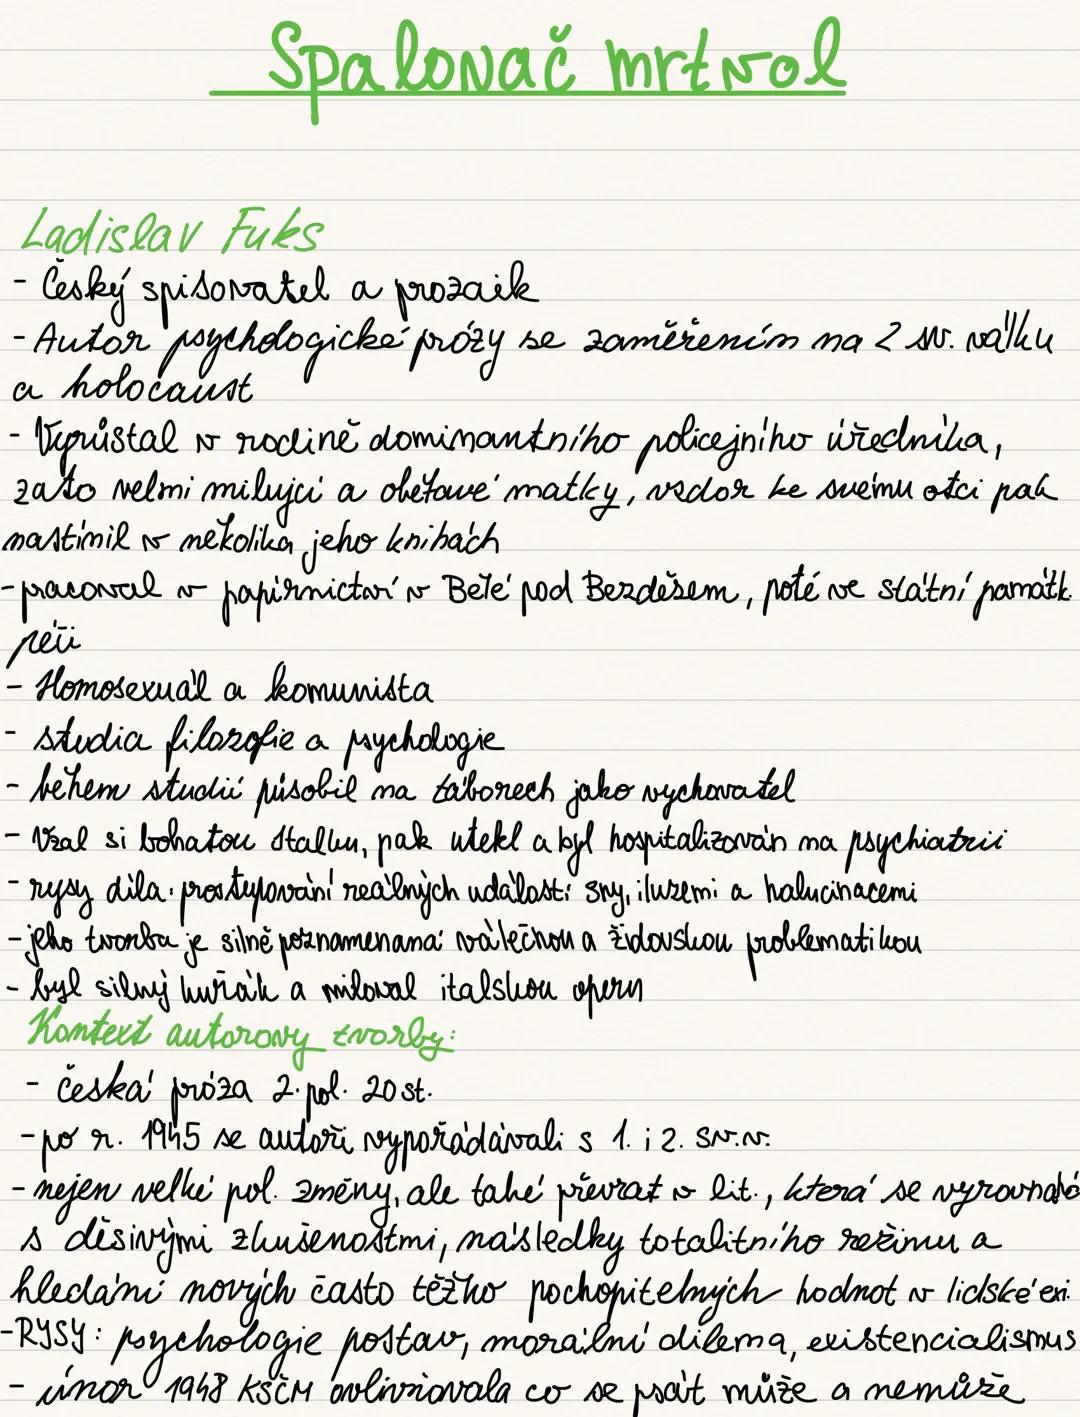 Spalovač mrtvol
Ladislav Fuks
- Český spisovatel a prozaik
- Autor psychologické prózy se zaměřením na 2 sv. válku
a holocaust
- Vyrůstal v rodině dominantního policejního úředníka,
zato velmi milující a obětavé matky, vzdor ke svému otci pak
nastínil v několika jeho knihách
- pracoval v papírnictví v Bělé pod Bezdězem, poté ve státní památk.
péči
- Homosexuál a komunista
- studia filozofie a psychologie
- během studií působil na táborech jako vychovatel
- Vzal si bohatou Italku, pak utekl a byl hospitalizován na psychiatrii
- rysy díla: prostupování reálných událostí sny, iluzemi a halucinacemi
- jeho tvorba je silně poznamenaná válečnou a židovskou problematikou
- byl silný kuřák a miloval italskou operu
Kontext autorovy tvorby:
- česká próza 2. pol. 20 st.
- po r. 1945 se autoři vypořádávali s 1. i 2. sv.v.
- nejen velké pol. změny, ale také převrat v lit., která se vyrovnává
s děsivými zkušenostmi, následky totalitního režimu a
hledání nových často těžko pochopitelných hodnot v lidské exi.
- RYSY: psychologie postav, morální dilema, existencialismus
- únor 1948 KSČM ovlivňovala co se psát může a nemůže